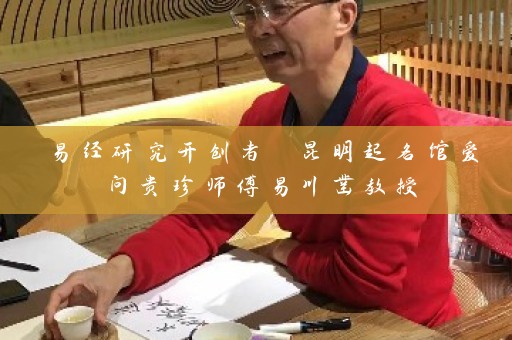 易经研究开创者 昆明起名馆爱
问贵珍师傅易川凿教授